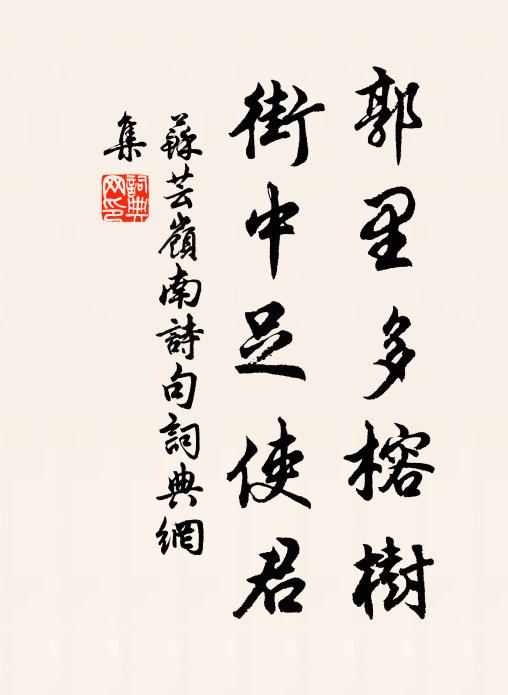 郭里多榕樹
街中足使君
蘇芸嶺南詩句詞典網
集
詞典
网印